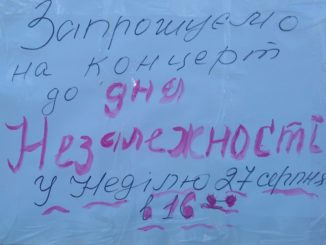 Запрошуємо
на концерт
до дня
Незалежності
у Неділю 27 серпня
в 16 00